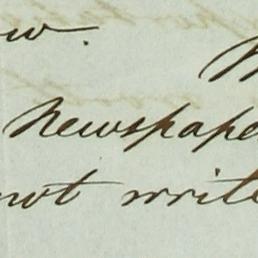 Newspape
not write